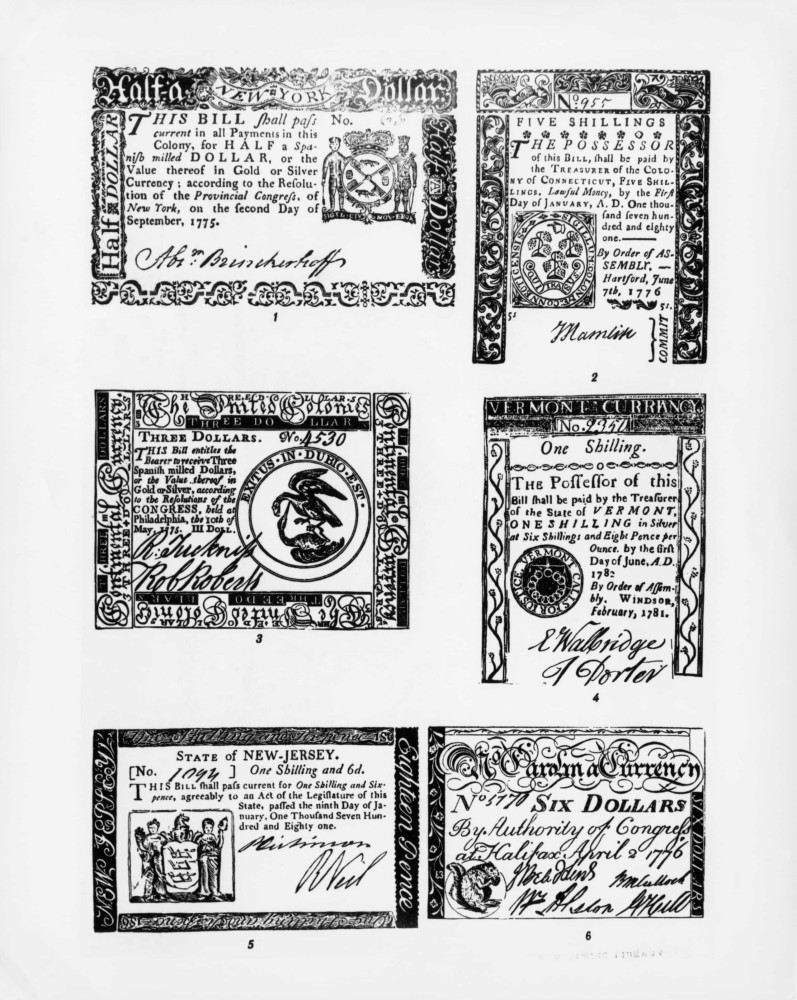 Half a NEW-YORK Dollar
Half a DOLLAR
THIS BILL shall pass No.
current in all Payments in this
Colony, for HALF a Spa-
nish milled DOLLAR, or the
Value thereof in Gold or Silver
Currency; according to the Resolu-
tion of the Provincial Congress, of
New York, on the second Day of
September, 1775.
Half a Dollar
Abr.m Brinckerhoff
1
No. 955
FIVE SHILLINGS
THE POSSESSOR
of this BILL, shall be paid by
the TREASURER of the COLO-
NY OF CONNECTICUT, FIVE SHIL-
LINGS, Lawful Money, by the First
Day of JANUARY, A. D. One thou-
sand seven hun-
dred and eighty
one.
By Order of AS-
SEMBLY. —
Hartford, June
7th, 1776
5s
5s.
COMMIT
2
The United Colonies
THREE DOLLAR
THREE DOLLARS. No. 4530
THIS Bill entitles the
Bearer to receive Three
Spanish milled Dollars,
or the Value thereof in
Gold or Silver, according
to the Resolutions of the
CONGRESS, held at
Philadelphia, the 10th of
May, 1775. III DOLL.
EXITUS·IN·DUBIO·EST·
Rob Roberts
3
VERMONT CURRENCY
No. 2350
One Shilling.
THE Possessor of this
Bill shall be paid by the Treasurer
of the State of VERMONT,
ONE SHILLING in Silver
at Six Shillings and Eight Pence per
Ounce. by the first
Day of June, A.D.
1782
By Order of Assem-
bly. WINDSOR,
February, 1781.
E Walbridge
T Porter
4
STATE of NEW-JERSEY.
[No. 1094 ] One Shilling and 6d.
THIS BILL shall pass current for One Shilling and Six-
pence, agreeably to an Act of the Legislature of this
State, passed the ninth Day of Ja-
nuary, One Thousand Seven Hun-
dred and Eighty one.
Eighteen Pence
R Neil
5
No Carolina Currency
No 5770 SIX DOLLARS
By Authority of Congress
at Halifax April 2 1776
Wm Alston
6